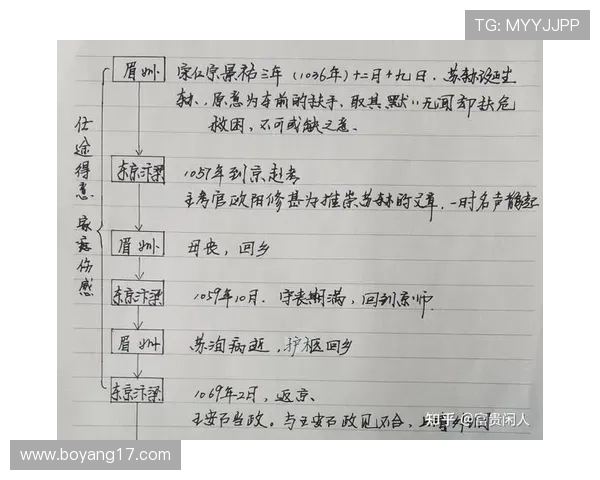 TG: MYYJJPP
仕途得意 家庭伤感
眉州
宋仁宗景祐三年(1036年)十二月十九日,苏轼诞生
轼,原意为车前的扶手,取其默默无闻却扶危
救困,不可或缺之意。
东京汴梁
1057年到京赴考
主考官欧阳修甚为推崇苏轼的文章,一时名声鹊起
眉州
母丧,回乡
东京汴梁
1059年10月.守丧期满,回到京师.
眉州
苏洵病逝,护柩回乡
东京汴梁
1069年2月,返京、
王安石当政。与王安石政见不合,上书
知乎 @富贵闲人
www.boyang17.com